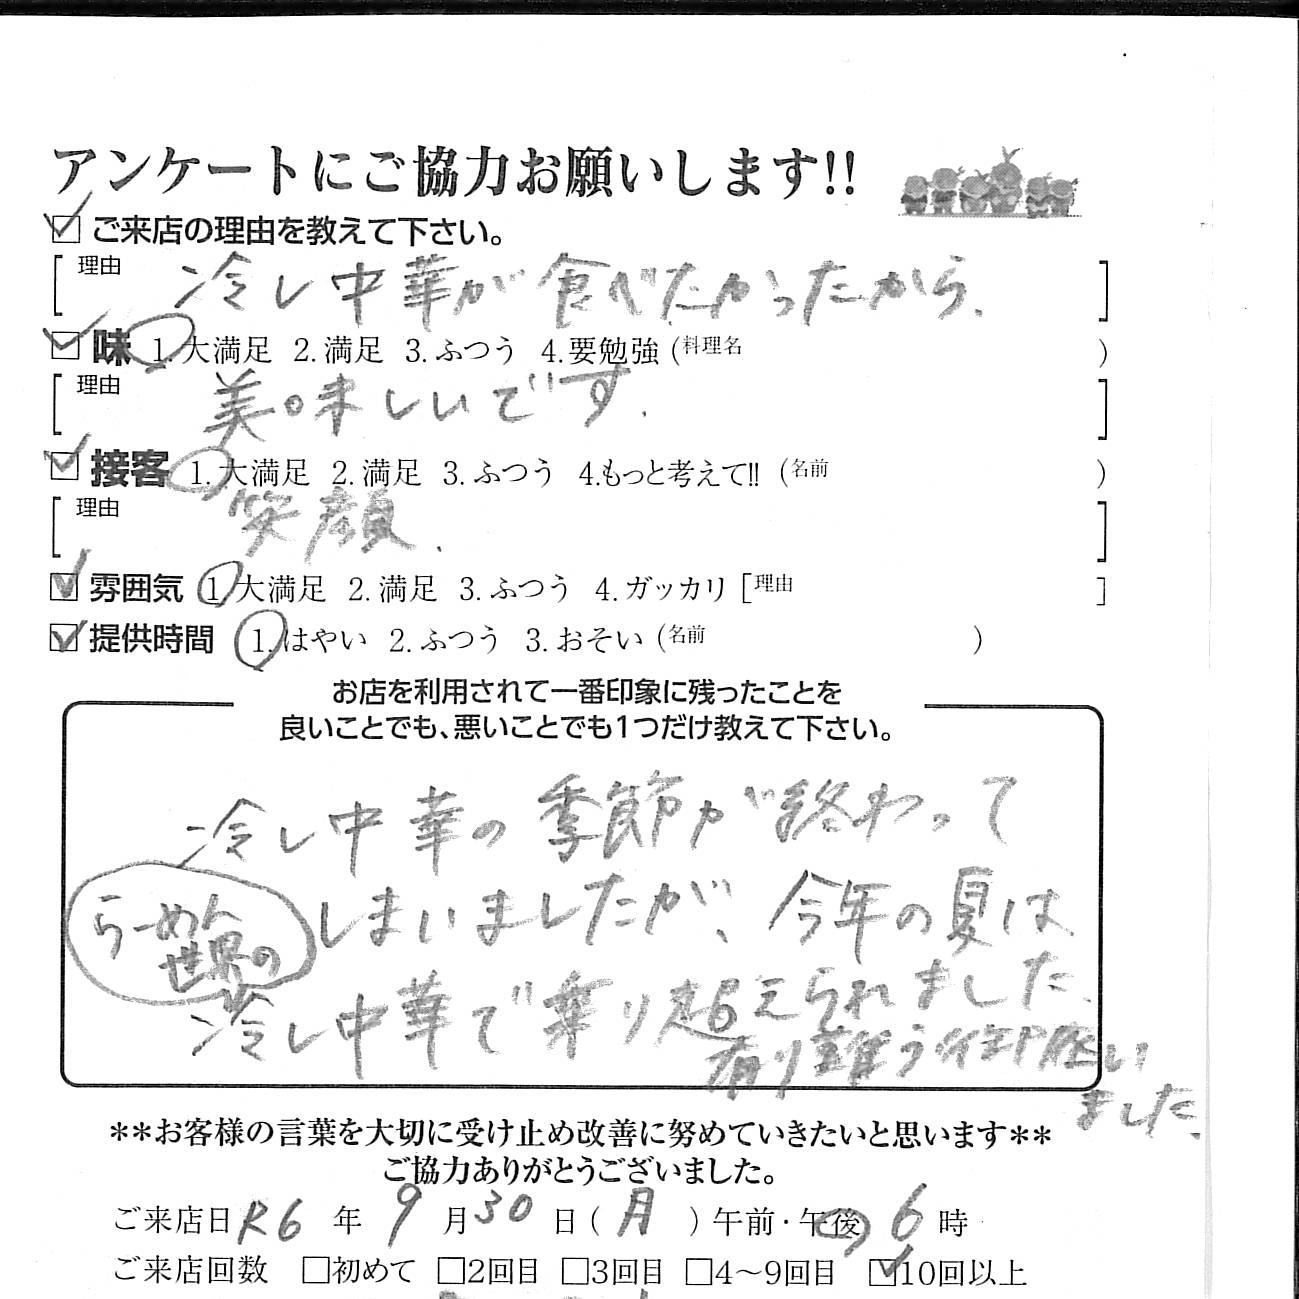 アンケートにご協力お願いします!!
ご来店の理由を教えて下さい。
理由 冷し中華が食べたかったから.
味 1.大満足 2.満足 3.ふつう 4.要勉強 (料理名 )
理由 美味しいです.
接客 1.大満足 2.満足 3.ふつう 4.もっと考えて!! (名前 )
理由 笑顔.
雰囲気 1.大満足 2.満足 3.ふつう 4.ガッカリ [理由 ]
提供時間 1.はやい 2.ふつう 3.おそい (名前 )
お店を利用されて一番印象に残ったことを
良いことでも、悪いことでも1つだけ教えて下さい。
冷し中華の季節が終わって
しまいましたが、今年の夏は
らーめん
世界の
冷し中華で乗り越えられました.
有り難う御座い
ました.
**お客様の言葉を大切に受け止め改善に努めていきたいと思います**
ご協力ありがとうございました。
ご来店日 R6 年 9 月 30 日 ( 月 ) 午前・午後 6 時
ご来店回数 □初めて □2回目 □3回目 □4～9回目 ☑10回以上